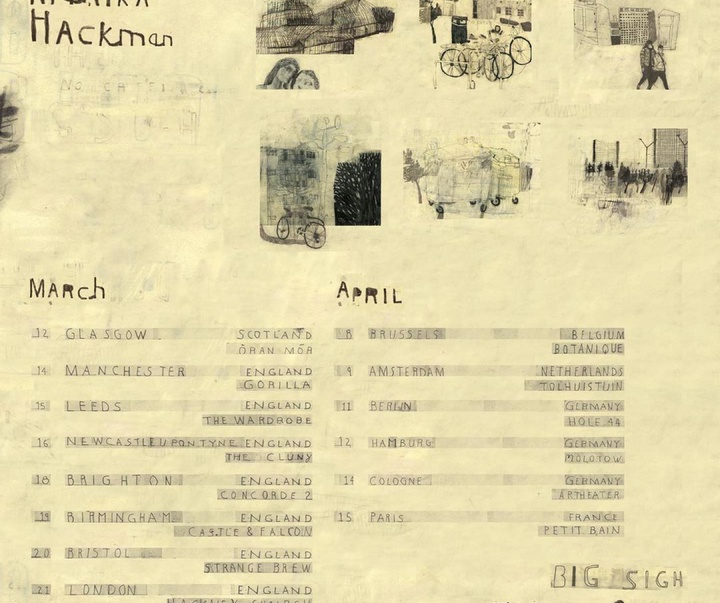 Hackman
March
12 GLASGOW SCOTLAND
ÒRAN MÓR
14 MANCHESTER ENGLAND
GORILLA
15 LEEDS ENGLAND
THE WARDROBE
16 NEWCASTLEUPONTYNE ENGLAND
THE CLUNY
18 BRIGHTON ENGLAND
CONCORDE 2
19 BIRMINGHAM ENGLAND
CASTLE & FALCON
20 BRISTOL ENGLAND
STRANGE BREW
21 LONDON ENGLAND
APRIL
8 BRUSSELS BELGIUM
BOTANIQUE
9 AMSTERDAM NETHERLANDS
TOLHUISTUIN
11 BERLIN GERMANY
HOLE 44
12 HAMBURG GERMANY
MOLOTOW
14 COLOGNE GERMANY
ARTHEATER
15 PARIS FRANCE
PETIT BAIN
BIG SIGH